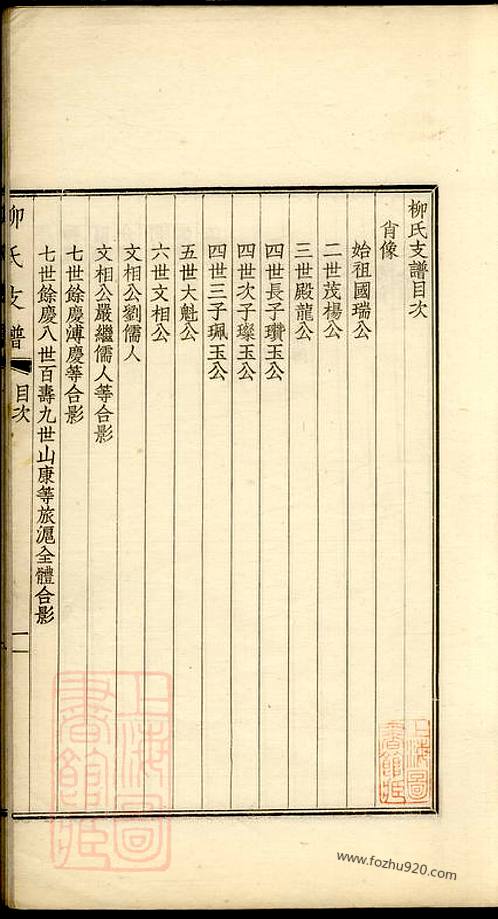 柳氏支譜目次
肖像
始祖國瑞公
二世茂楊公
三世殿龍公
四世長子瓚玉公
四世次子璨玉公
四世三子珮玉公
五世大魁公
六世文相公
文相公劉儒人
文相公嚴繼儒人等合影
七世餘慶溥慶等合影
七世餘慶八世百壽九世山康等旅滬全體合影
柳氏支譜
目次
一
上海圖書館藏
上海圖書館藏
www.fozhu920.com